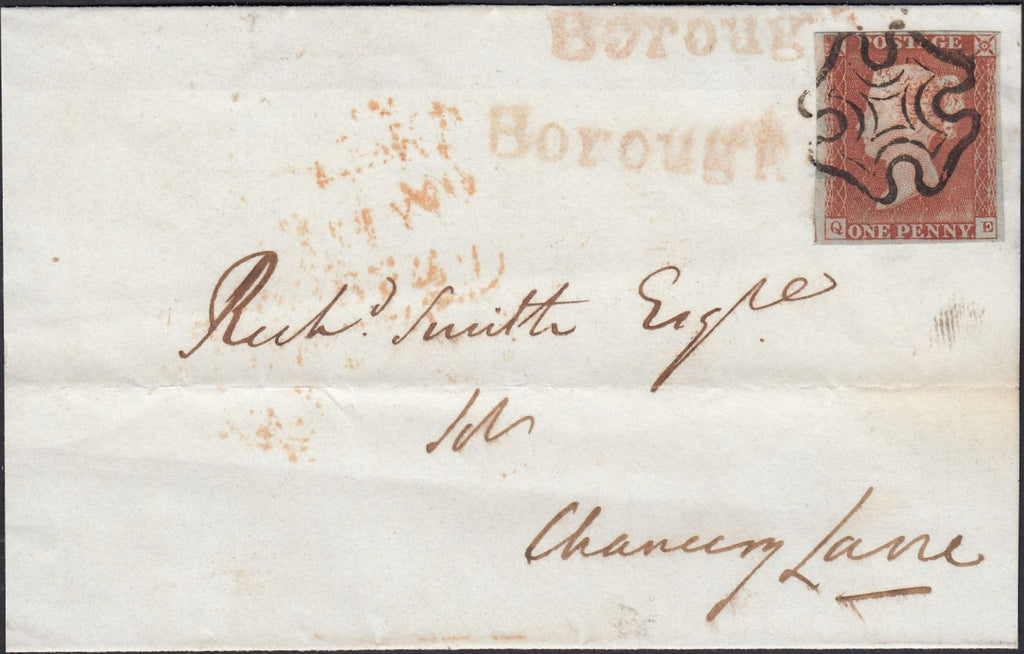 Borough
Borough
POSTAGE
Q ONE PENNY E
Richd. Smith Esqre
Solr
Chancery Lane